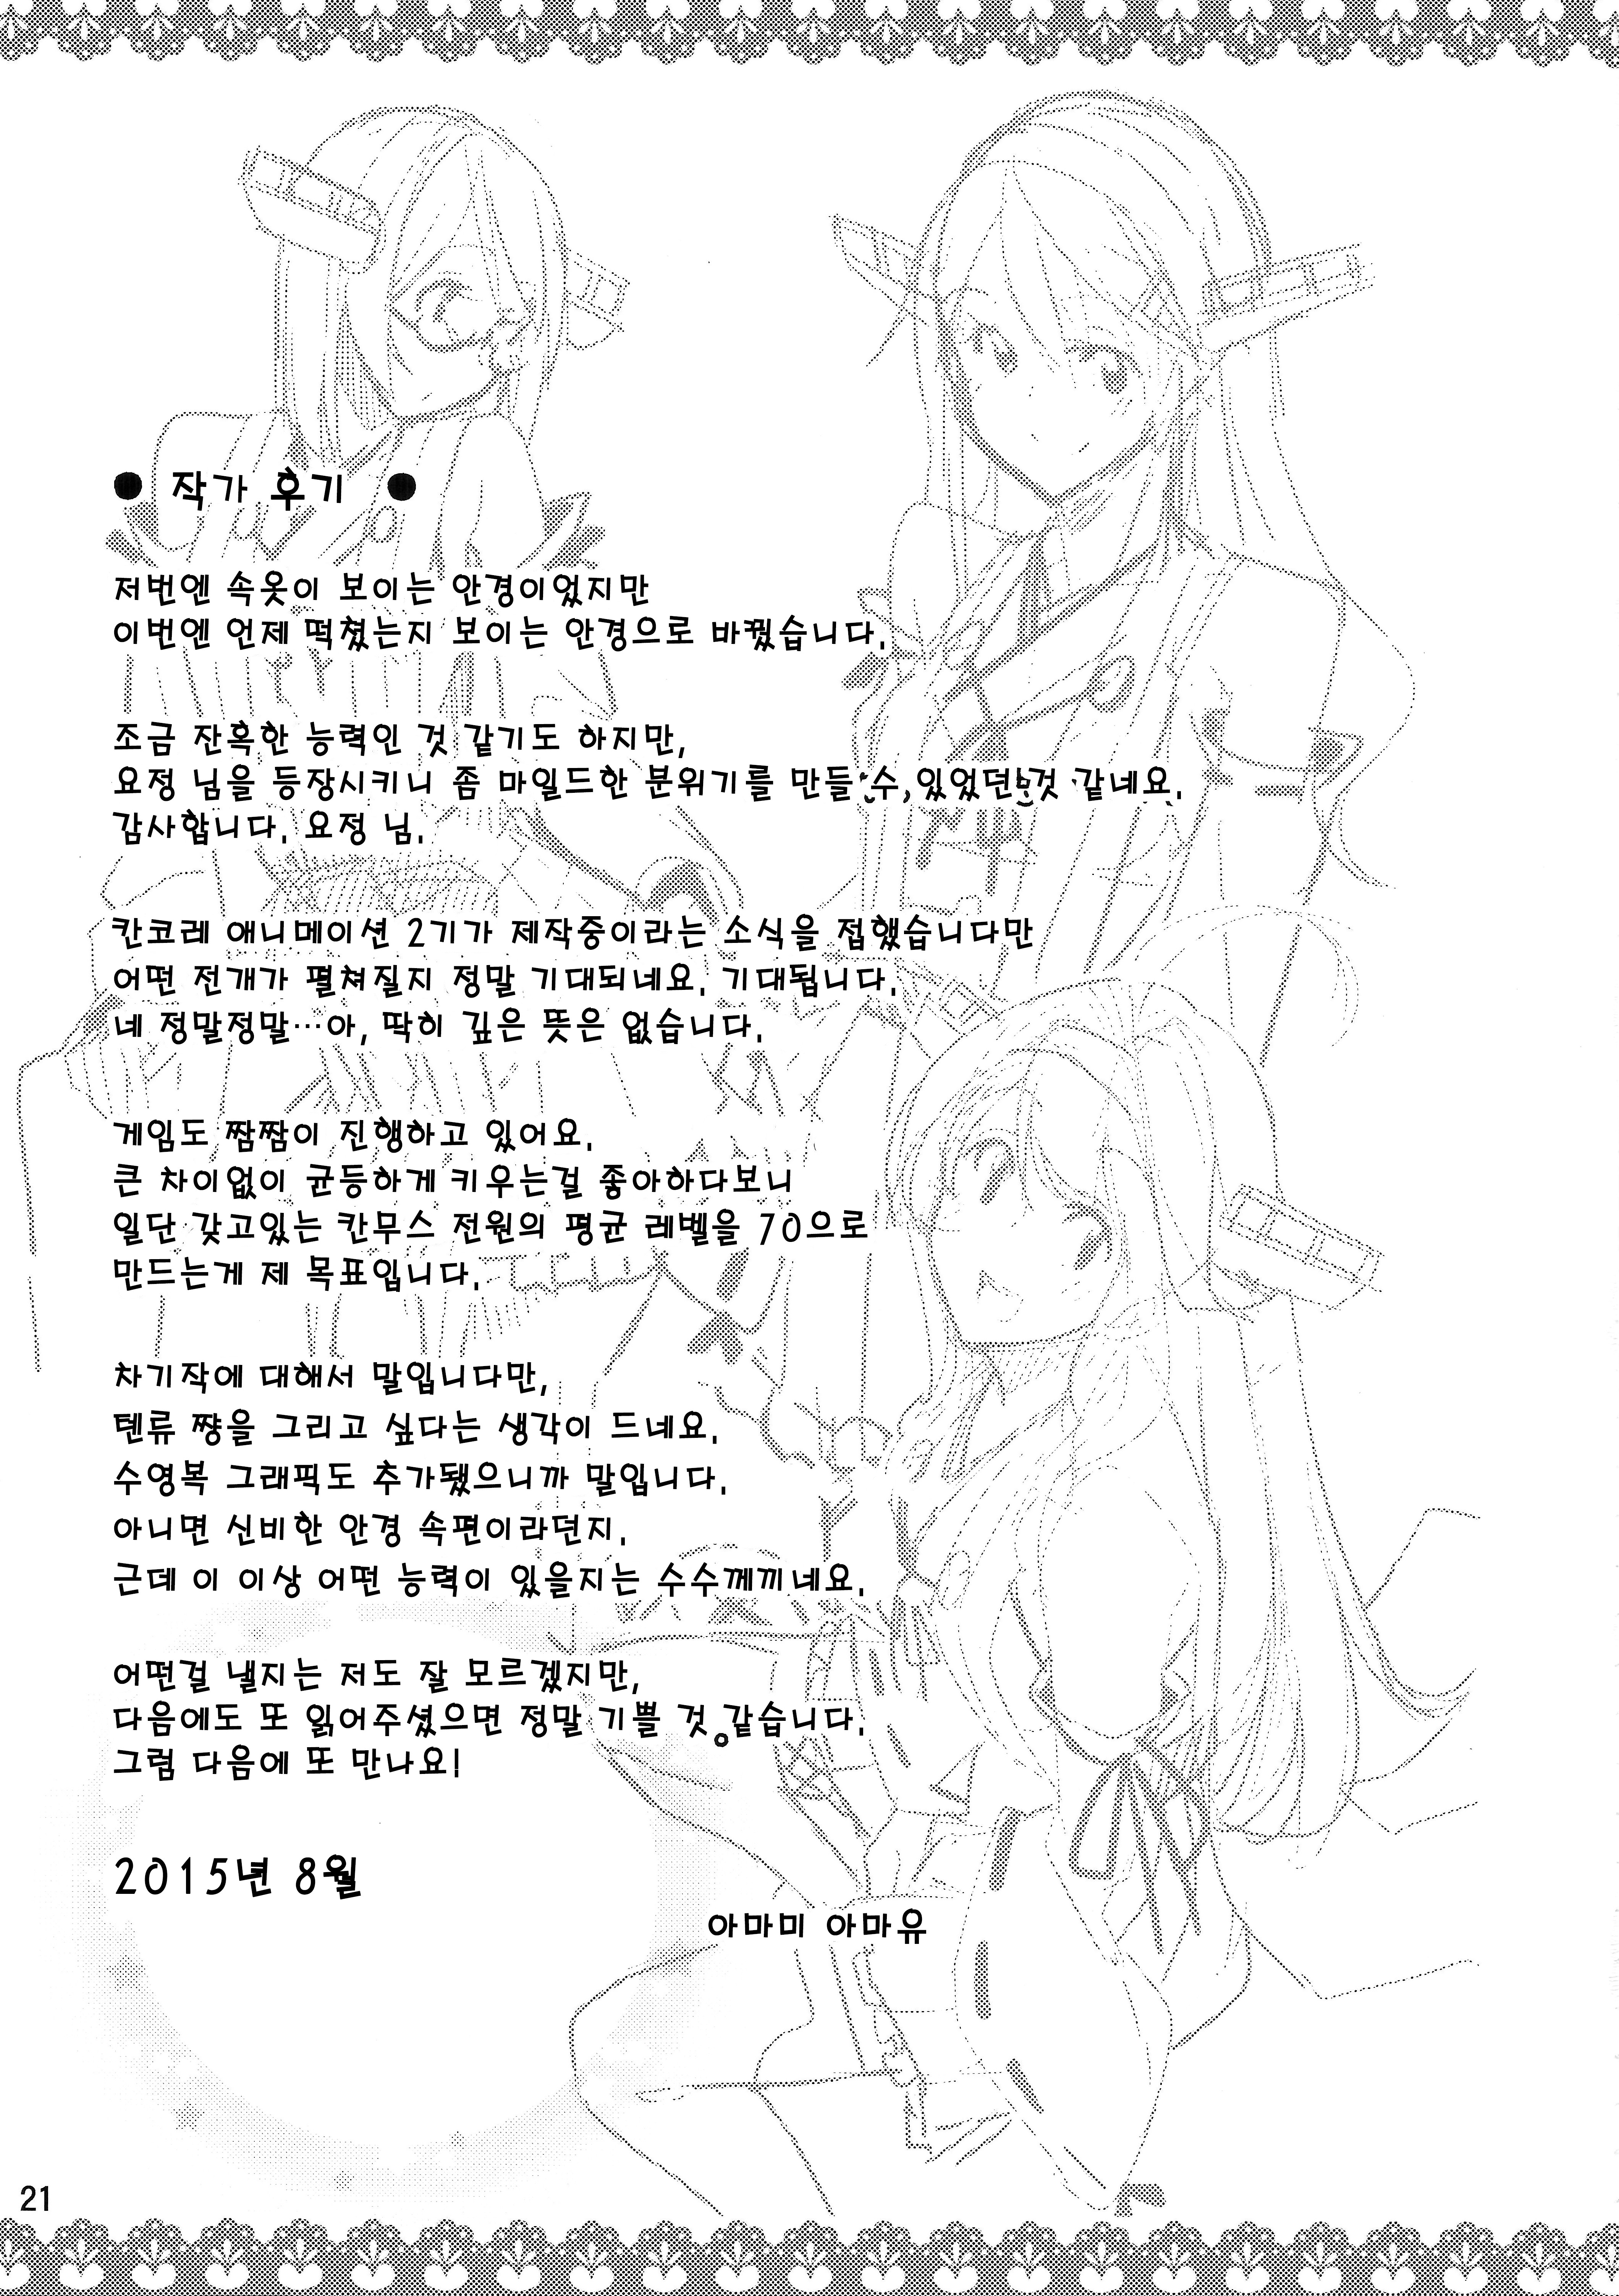 ● 작가 후기 ●
저번엔 속옷이 보이는 안경이었지만
이번엔 언제 떡쳤는지 보이는 안경으로 바꿨습니다.
조금 잔혹한 능력인 것 같기도 하지만,
요정 님을 등장시키니 좀 마일드한 분위기를 만들 수 있었던 것 같네요.
감사합니다. 요정 님.
칸코레 애니메이션 2기가 제작중이라는 소식을 접했습니다만
어떤 전개가 펼쳐질지 정말 기대되네요. 기대됩니다.
네 정말정말…아, 딱히 깊은 뜻은 없습니다.
게임도 짬짬이 진행하고 있어요.
큰 차이없이 균등하게 키우는걸 좋아하다보니
일단 갖고있는 칸무스 전원의 평균 레벨을 70으로
만드는게 제 목표입니다.
차기작에 대해서 말입니다만,
텐류 쨩을 그리고 싶다는 생각이 드네요.
수영복 그래픽도 추가됐으니까 말입니다.
아니면 신비한 안경 속편이라던지.
근데 이 이상 어떤 능력이 있을지는 수수께끼네요.
어떤걸 낼지는 저도 잘 모르겠지만,
다음에도 또 읽어주셨으면 정말 기쁠 것 같습니다.
그럼 다음에 또 만나요!
2015년 8월
아마미 아마유
21